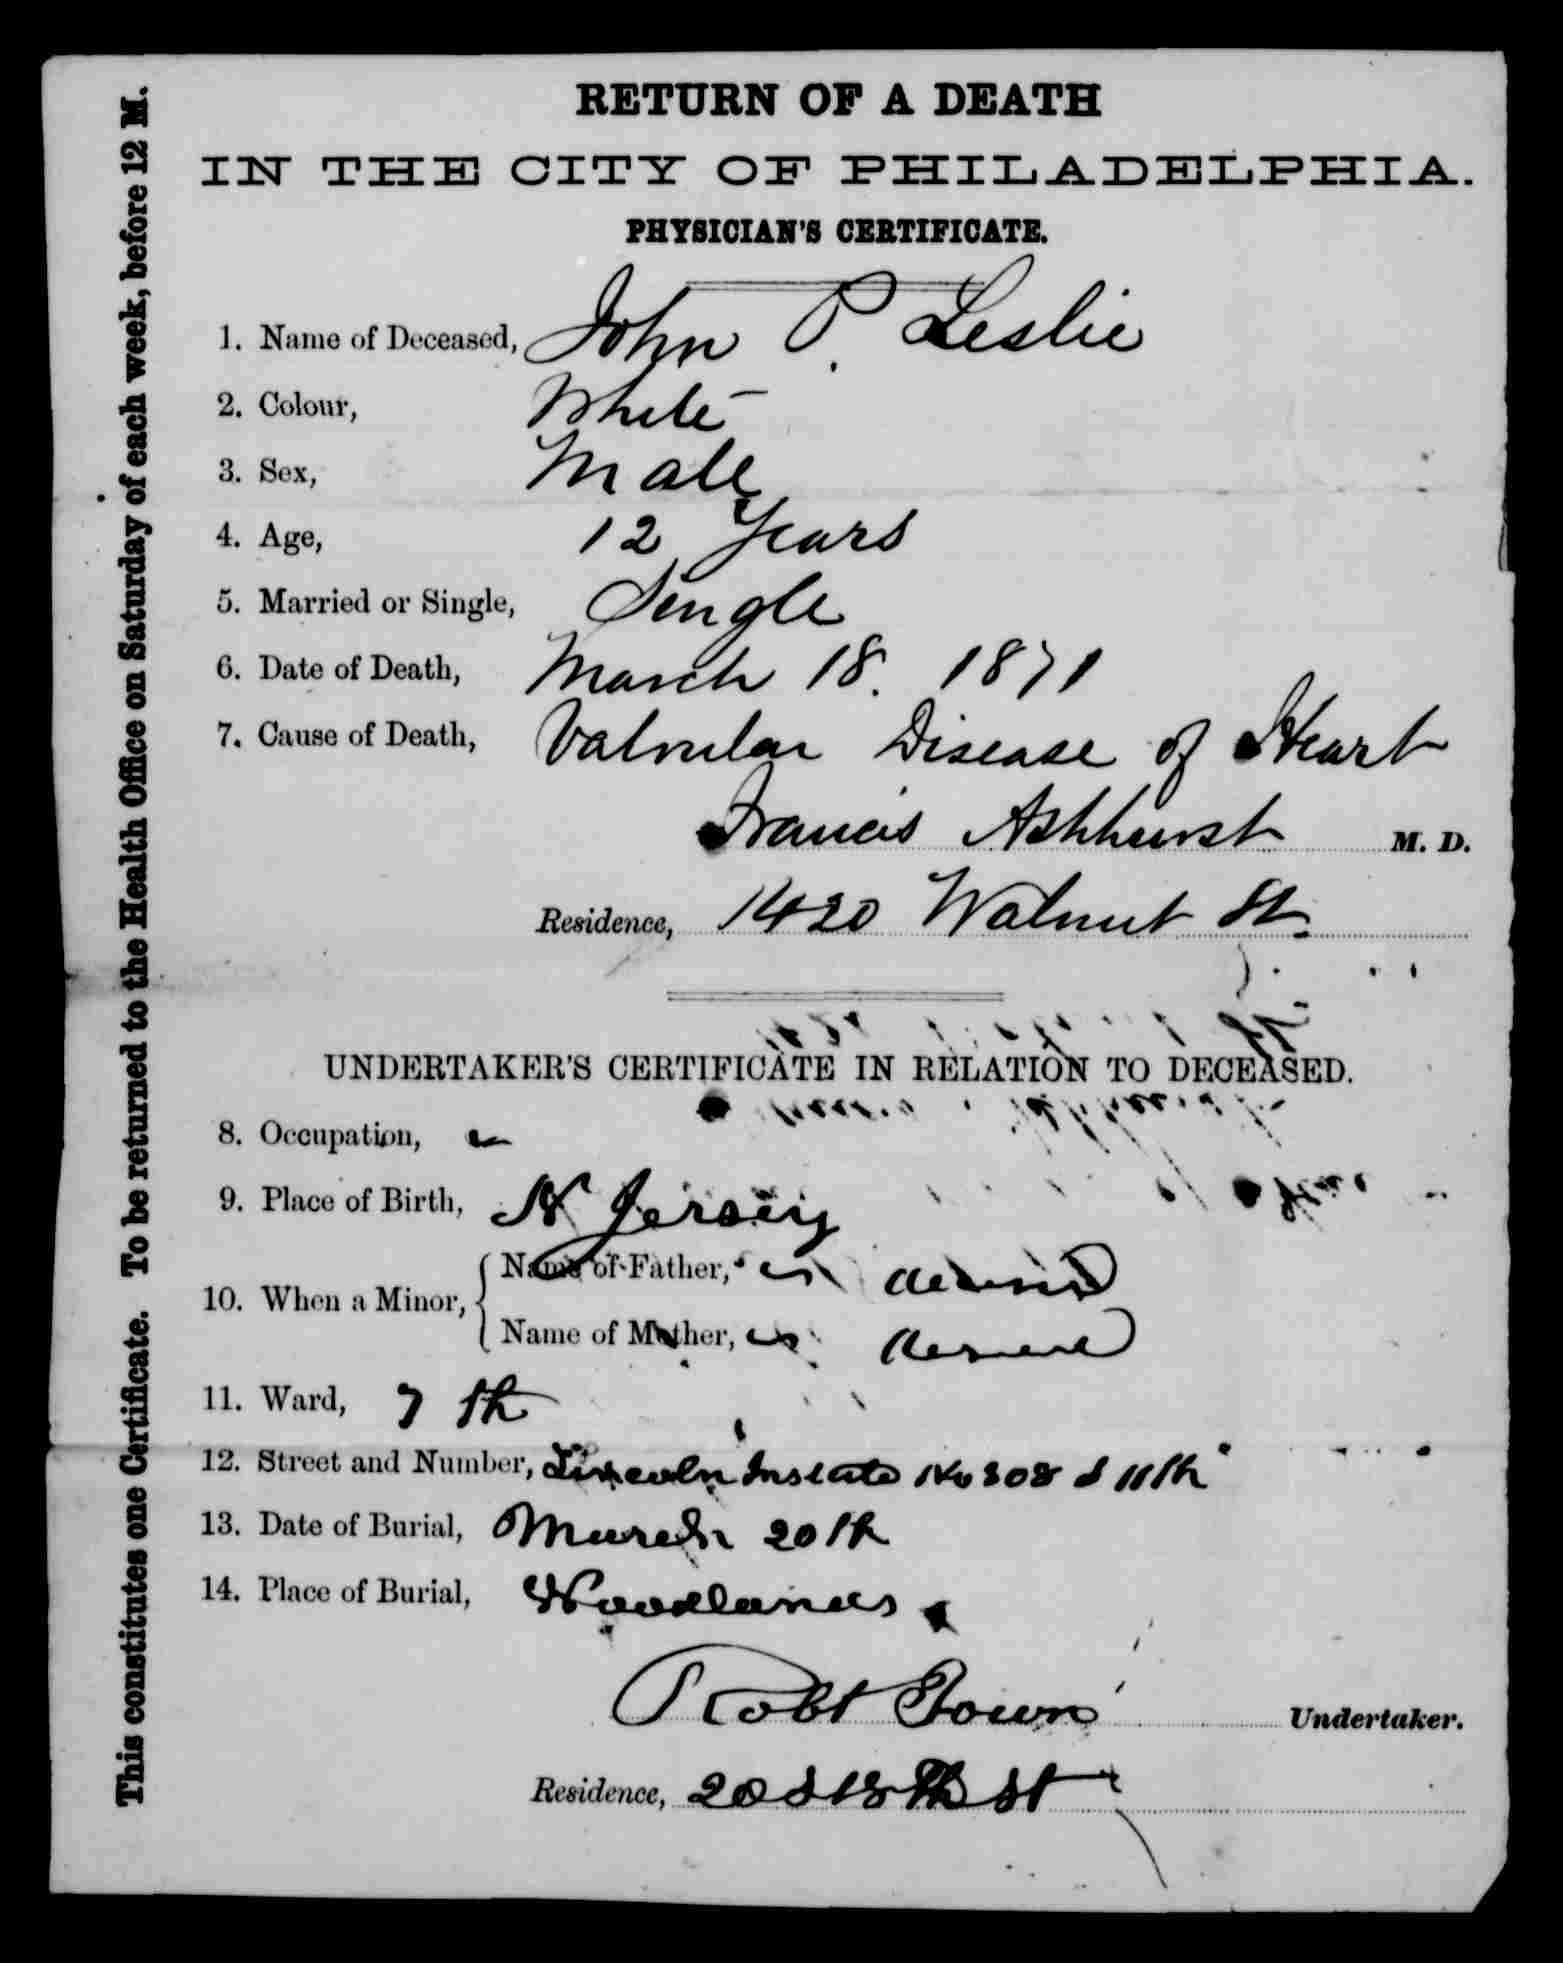 RETURN OF A DEATH
IN THE CITY OF PHILADELPHIA.
PHYSICIAN'S CERTIFICATE.
1. Name of Deceased, John P. Leslie
2. Colour, White
3. Sex, Male
4. Age, 12 Years
5. Married or Single, Single
6. Date of Death, March 18. 1871
7. Cause of Death, Valvular Disease of Heart
Francis Ashhurst M. D.
Residence, 1420 Walnut St.
UNDERTAKER'S CERTIFICATE IN RELATION TO DECEASED.
8. Occupation,
9. Place of Birth, N Jersey
10. When a Minor,
Name of Father,
Name of Mother,
11. Ward, 7th
12. Street and Number, Lincoln No 308 S 11th
13. Date of Burial, March 20th
14. Place of Burial, Woodlands
Robt Undertaker.
Residence, 20 S 18th St
This constitutes one Certificate. To be returned to the Health Office on Saturday of each week, before 12 M.